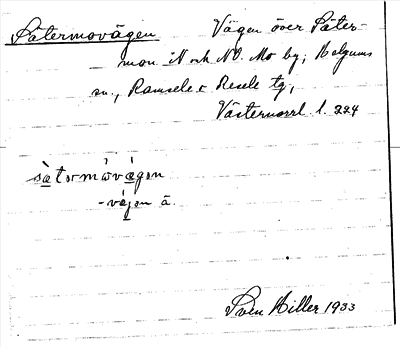 Sätermovägen Vägen över Säter-
mon N och NO. Mo by; Helgums
sn., Ramsele o Resele tg,
Västernorrl. l. 224
sä̀termòvägen
-vä́jen ä.
Sven Hiller 1933